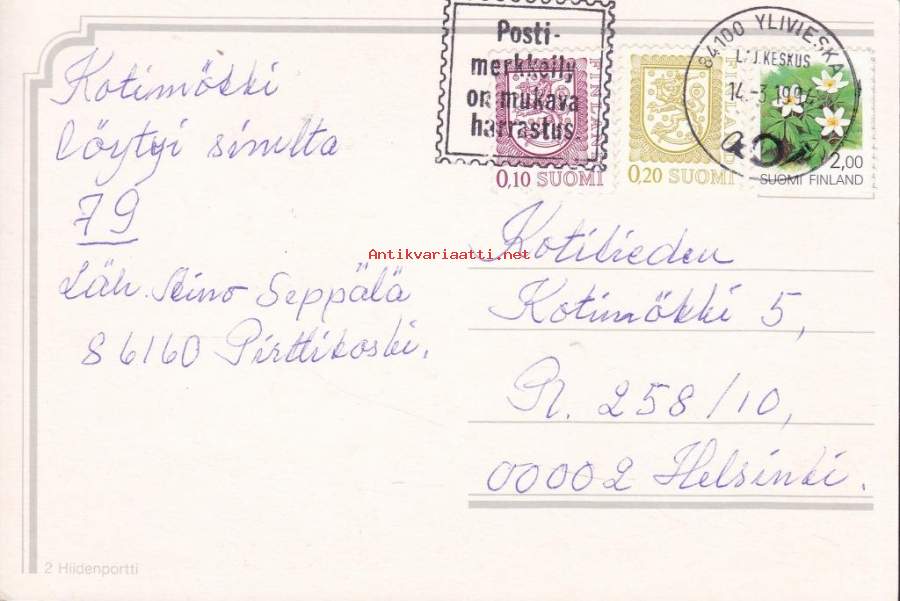 Kotimökki
löytyi sivulta
79
Läh. Aino Seppälä
86160 Pirttikoski.
Posti-
merkkeily
on mukava
harrastus
84100 YLIVIESKA
KESKUS
14.-3.1994
FINLAND
0,10 SUOMI
FINLAND
0,20 SUOMI
2,00
SUOMI FINLAND
Antikvariaatti.net
Kotilieden
Kotimökki 5,
PL. 258/10,
00002 Helsinki.
2 Hiidenportti